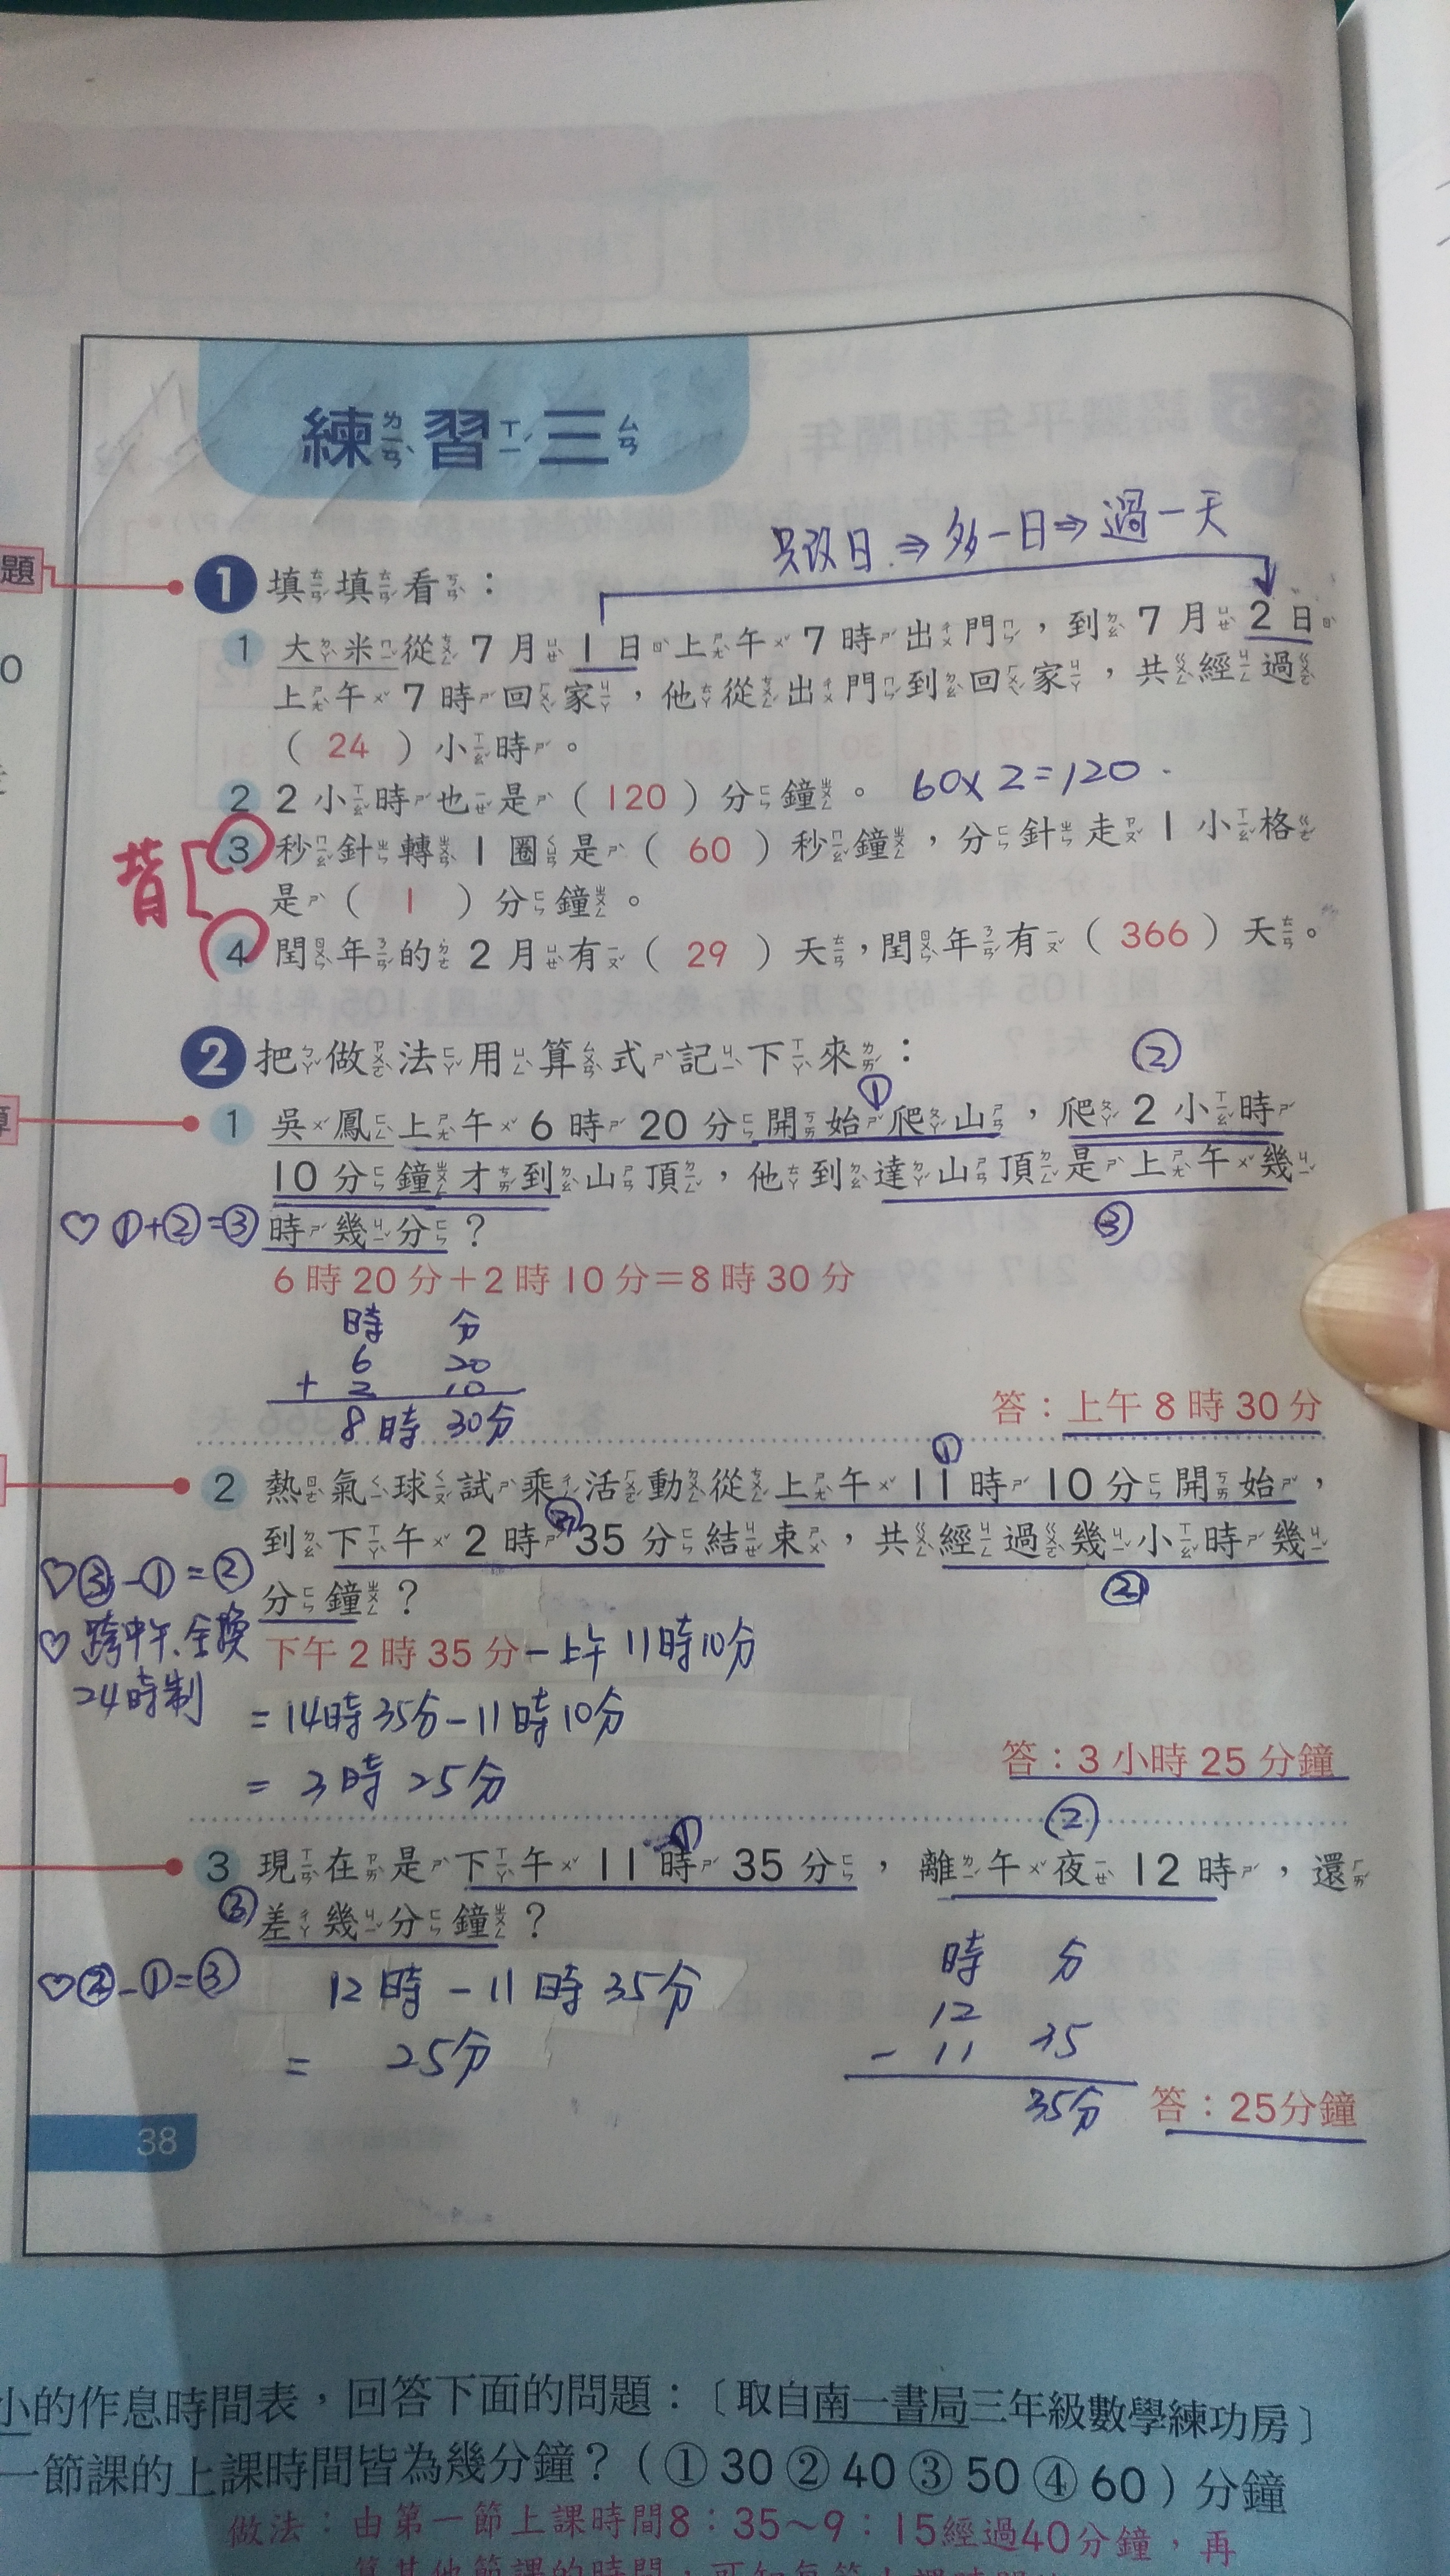 練習三
題
只改日⇒多一日⇒過一天
1 填填看：
1 大米從7月1日上午7時出門，到7月2日
上午7時回家，他從出門到回家，共經過
（24）小時。
2 2小時也是（120）分鐘。 60×2=120
背
3 秒針轉1圈是（60）秒鐘，分針走1小格
是（1）分鐘。
4 閏年的2月有（29）天，閏年有（366）天。
2 把做法用算式記下來：
② 
①
1 吳鳳上午6時20分開始爬山，爬2小時
10分鐘才到山頂，他到達山頂是上午幾
♡①+②=③ 時幾分？ ③
6時20分＋2時10分＝8時30分
時 分
6 20
+ 2 10
8時 30分
答：上午8時30分
①
2 熱氣球試乘活動從上午11時10分開始，
③
到下午2時35分結束，共經過幾小時幾
♡③-①=② 分鐘？ ②
♡跨中午、全換
24時制
下午2時35分-上午11時10分
=14時35分-11時10分
=3時25分
答：3小時25分鐘
① ②
3 現在是下午11時35分，離午夜12時，還
③差幾分鐘？
♡②-①=③ 12時-11時35分
= 25分
時 分
12
- 11 35
35分
答：25分鐘
38
小的作息時間表，回答下面的問題：〔取自南一書局三年級數學練功房〕
一節課的上課時間皆為幾分鐘？（①30②40③50④60）分鐘
做法：由第一節上課時間8：35～9：15經過40分鐘，再